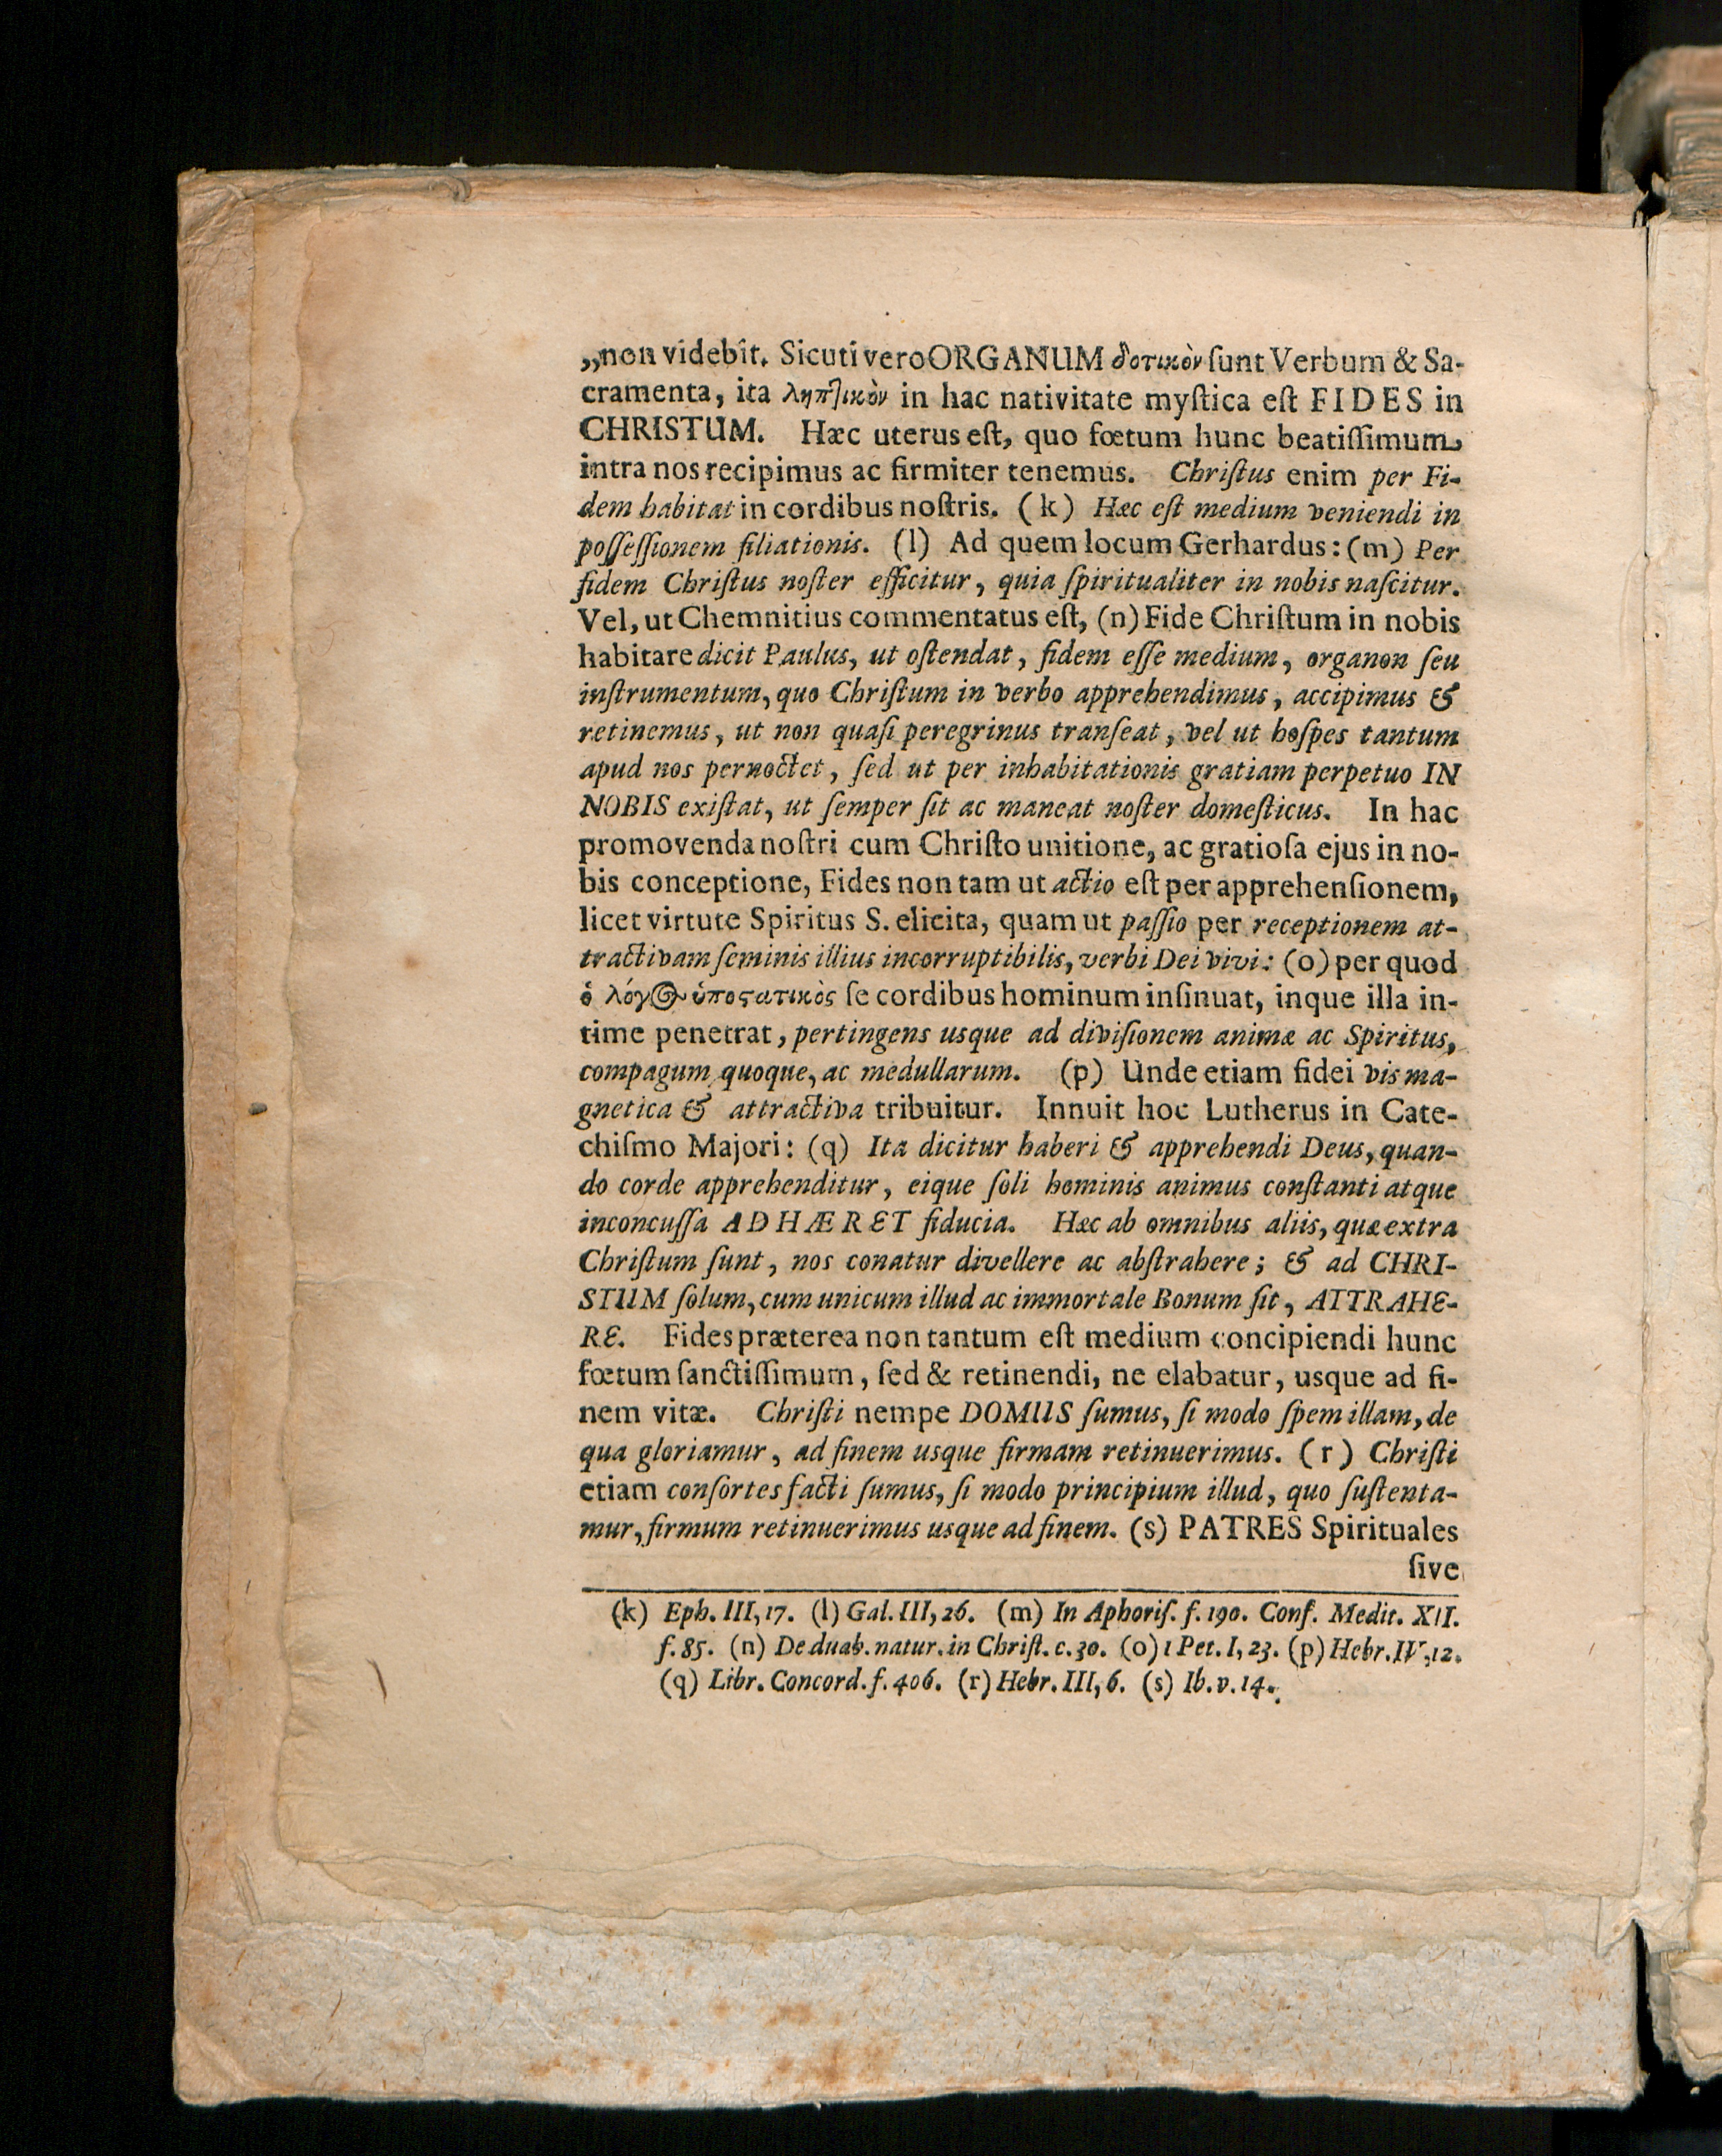 „non videbit. Sicuti vero ORGANUM δοτικὸν ſunt Verbum & Sa-
cramenta, ita ληπτικὸν in hac nativitate myſtica eſt FIDES in
CHRISTUM. Hæc uterus eſt, quo fœtum hunc beatiſſimum
intra nos recipimus ac firmiter tenemus. Chriſtus enim per Fi-
dem habitat in cordibus noſtris. (k) Hæc eſt medium veniendi in
poſſeſſionem filiationis. (l) Ad quem locum Gerhardus: (m) Per
fidem Chriſtus noſter efficitur, quia ſpiritualiter in nobis naſcitur.
Vel, ut Chemnitius commentatus eſt, (n) Fide Chriſtum in nobis
habitare dicit Paulus, ut oſtendat, fidem eſſe medium, organon ſeu
inſtrumentum, quo Chriſtum in verbo apprehendimus, accipimus &
retinemus, ut non quaſi peregrinus tranſeat, vel ut hoſpes tantum
apud nos pernoctet, ſed ut per inhabitationis gratiam perpetuo IN
NOBIS exiſtat, ut ſemper ſit ac maneat noſter domeſticus. In hac
promovenda noſtri cum Chriſto unitione, ac gratioſa ejus in no-
bis conceptione, Fides non tam ut actio eſt per apprehenſionem,
licet virtute Spiritus S. elicita, quam ut paſſio per receptionem at-
tractivam ſeminis illius incorruptibilis, verbi Dei vivi: (o) per quod
ὁ λόγος ὑποςατικὸς ſe cordibus hominum inſinuat, inque illa in-
time penetrat, pertingens usque ad diviſionem animæ ac Spiritus,
compagum quoque, ac medullarum. (p) Unde etiam fidei vis ma-
gnetica & attractiva tribuitur. Innuit hoc Lutherus in Cate-
chiſmo Majori: (q) Ita dicitur haberi & apprehendi Deus, quan-
do corde apprehenditur, eique ſoli hominis animus conſtanti atque
inconcuſſa ADHÆRET fiducia. Hæc ab omnibus aliis, quæ extra
Chriſtum ſunt, nos conatur divellere ac abſtrahere; & ad CHRI-
STUM ſolum, cum unicum illud ac immortale Bonum ſit, ATTRAHE-
RE. Fides præterea non tantum eſt medium concipiendi hunc
fœtum ſanctiſſimum, ſed & retinendi, ne elabatur, usque ad fi-
nem vitæ. Chriſti nempe DOMUS ſumus, ſi modo ſpem illam, de
qua gloriamur, ad finem usque firmam retinuerimus. (r) Chriſti
etiam conſortes facti ſumus, ſi modo principium illud, quo ſuſtenta-
mur, firmum retinuerimus usque ad finem. (s) PATRES Spirituales
ſive
(k) Eph. III, 17. (l) Gal. III, 26. (m) In Aphoriſ. f. 190. Conf. Medit. XII.
f. 85. (n) De duab. natur. in Chriſt. c. 30. (o) 1 Pet. I, 23. (p) Hebr. IV, 12.
(q) Libr. Concord. f. 406. (r) Hebr. III, 6. (s) Ib. v. 14.